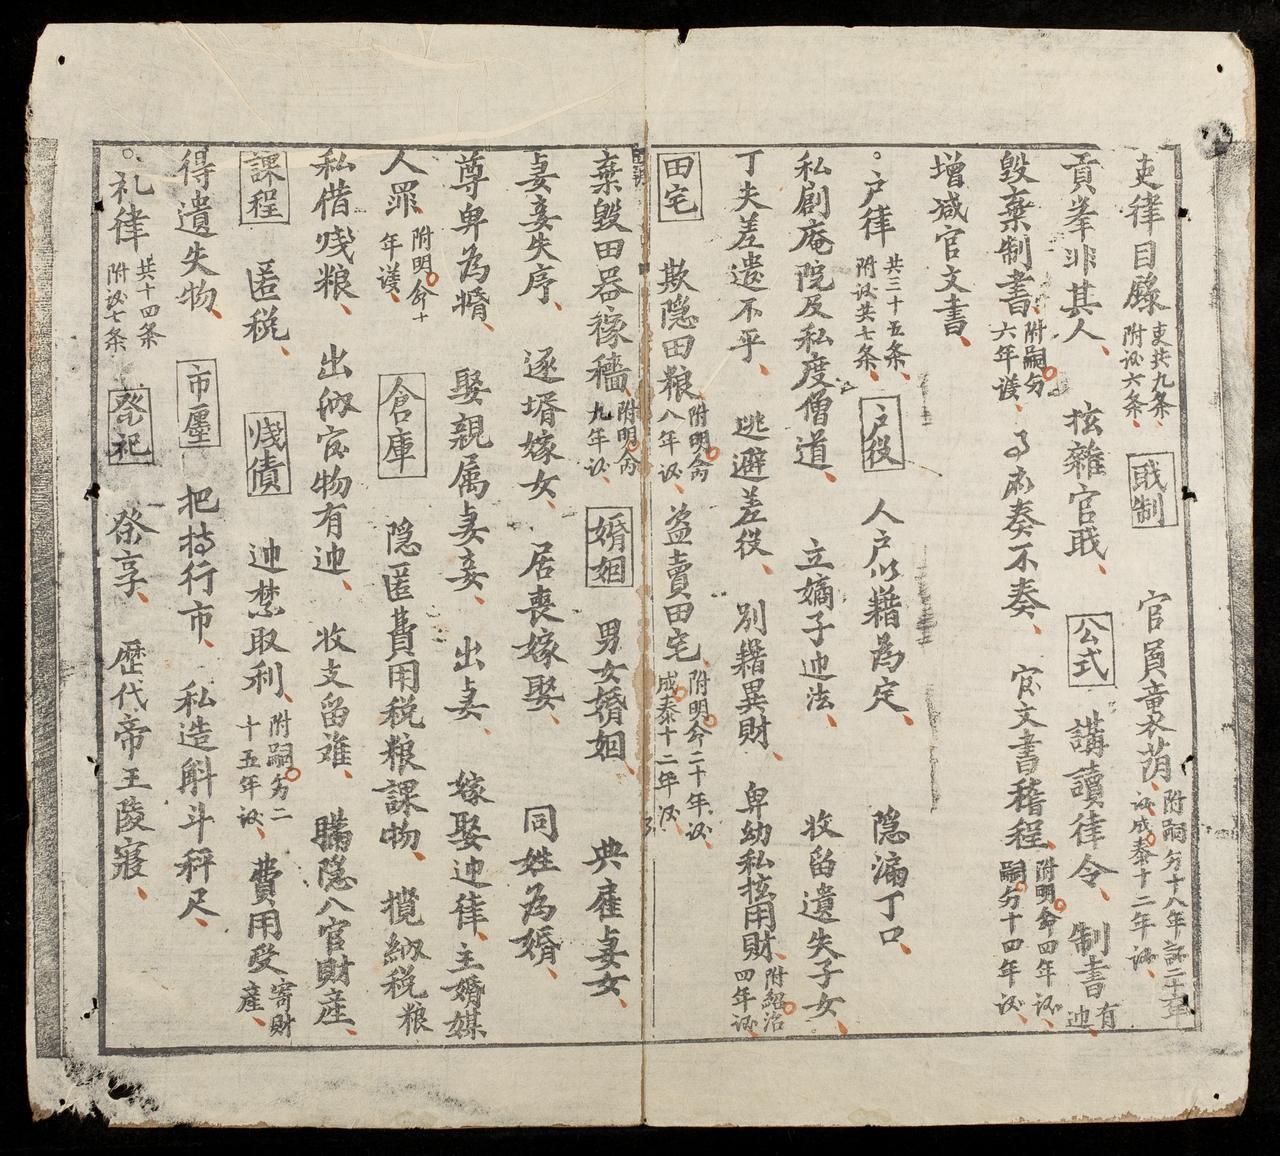 吏律目録 吏共九条 附议六条 職制 官員襲荫 附嗣有十八年 议成泰十二年议
貢举非其人 擅離官職 公式 講讀律令 制書有违
毀棄制書 附嗣 六年議 事应奏不奏 官文書稽程 附明命四年议 嗣 十四年议
增减官文書
户律 共三十五条 附议共七条 户役 人户以籍為定 隐漏丁口
私創庵院及私度僧道 立嫡子违法 收留遺失子女
丁夫差遣不平 逃避差役 別籍異財 卑幼私擅用財 附紹治四年议
田宅 欺隐田粮 附明命八年议 盗賣田宅 附明命二十年议 成泰十二年议
棄毀田器稼穡 附明命九年议 婚姻 男女婚姻 典雇妻女
妻妾失序 逐壻嫁女 居喪嫁娶 同姓為婚
尊卑為婚 娶親属妻妾 出妻 嫁娶违律主婚媒
人罪 附明命十年議 倉庫 隐匿費用税粮課物 攬納税粮
私借钱粮 出納官物有违 收支留难 瞞隐入官財産
課程 匿税 钱債 违禁取利 附嗣 二十五年议 費用受寄財産
得遺失物 市廛 把持行市 私造斛斗秤尺
礼律 共十四条 附议七条 祭祀 祭享 歷代帝王陵寢